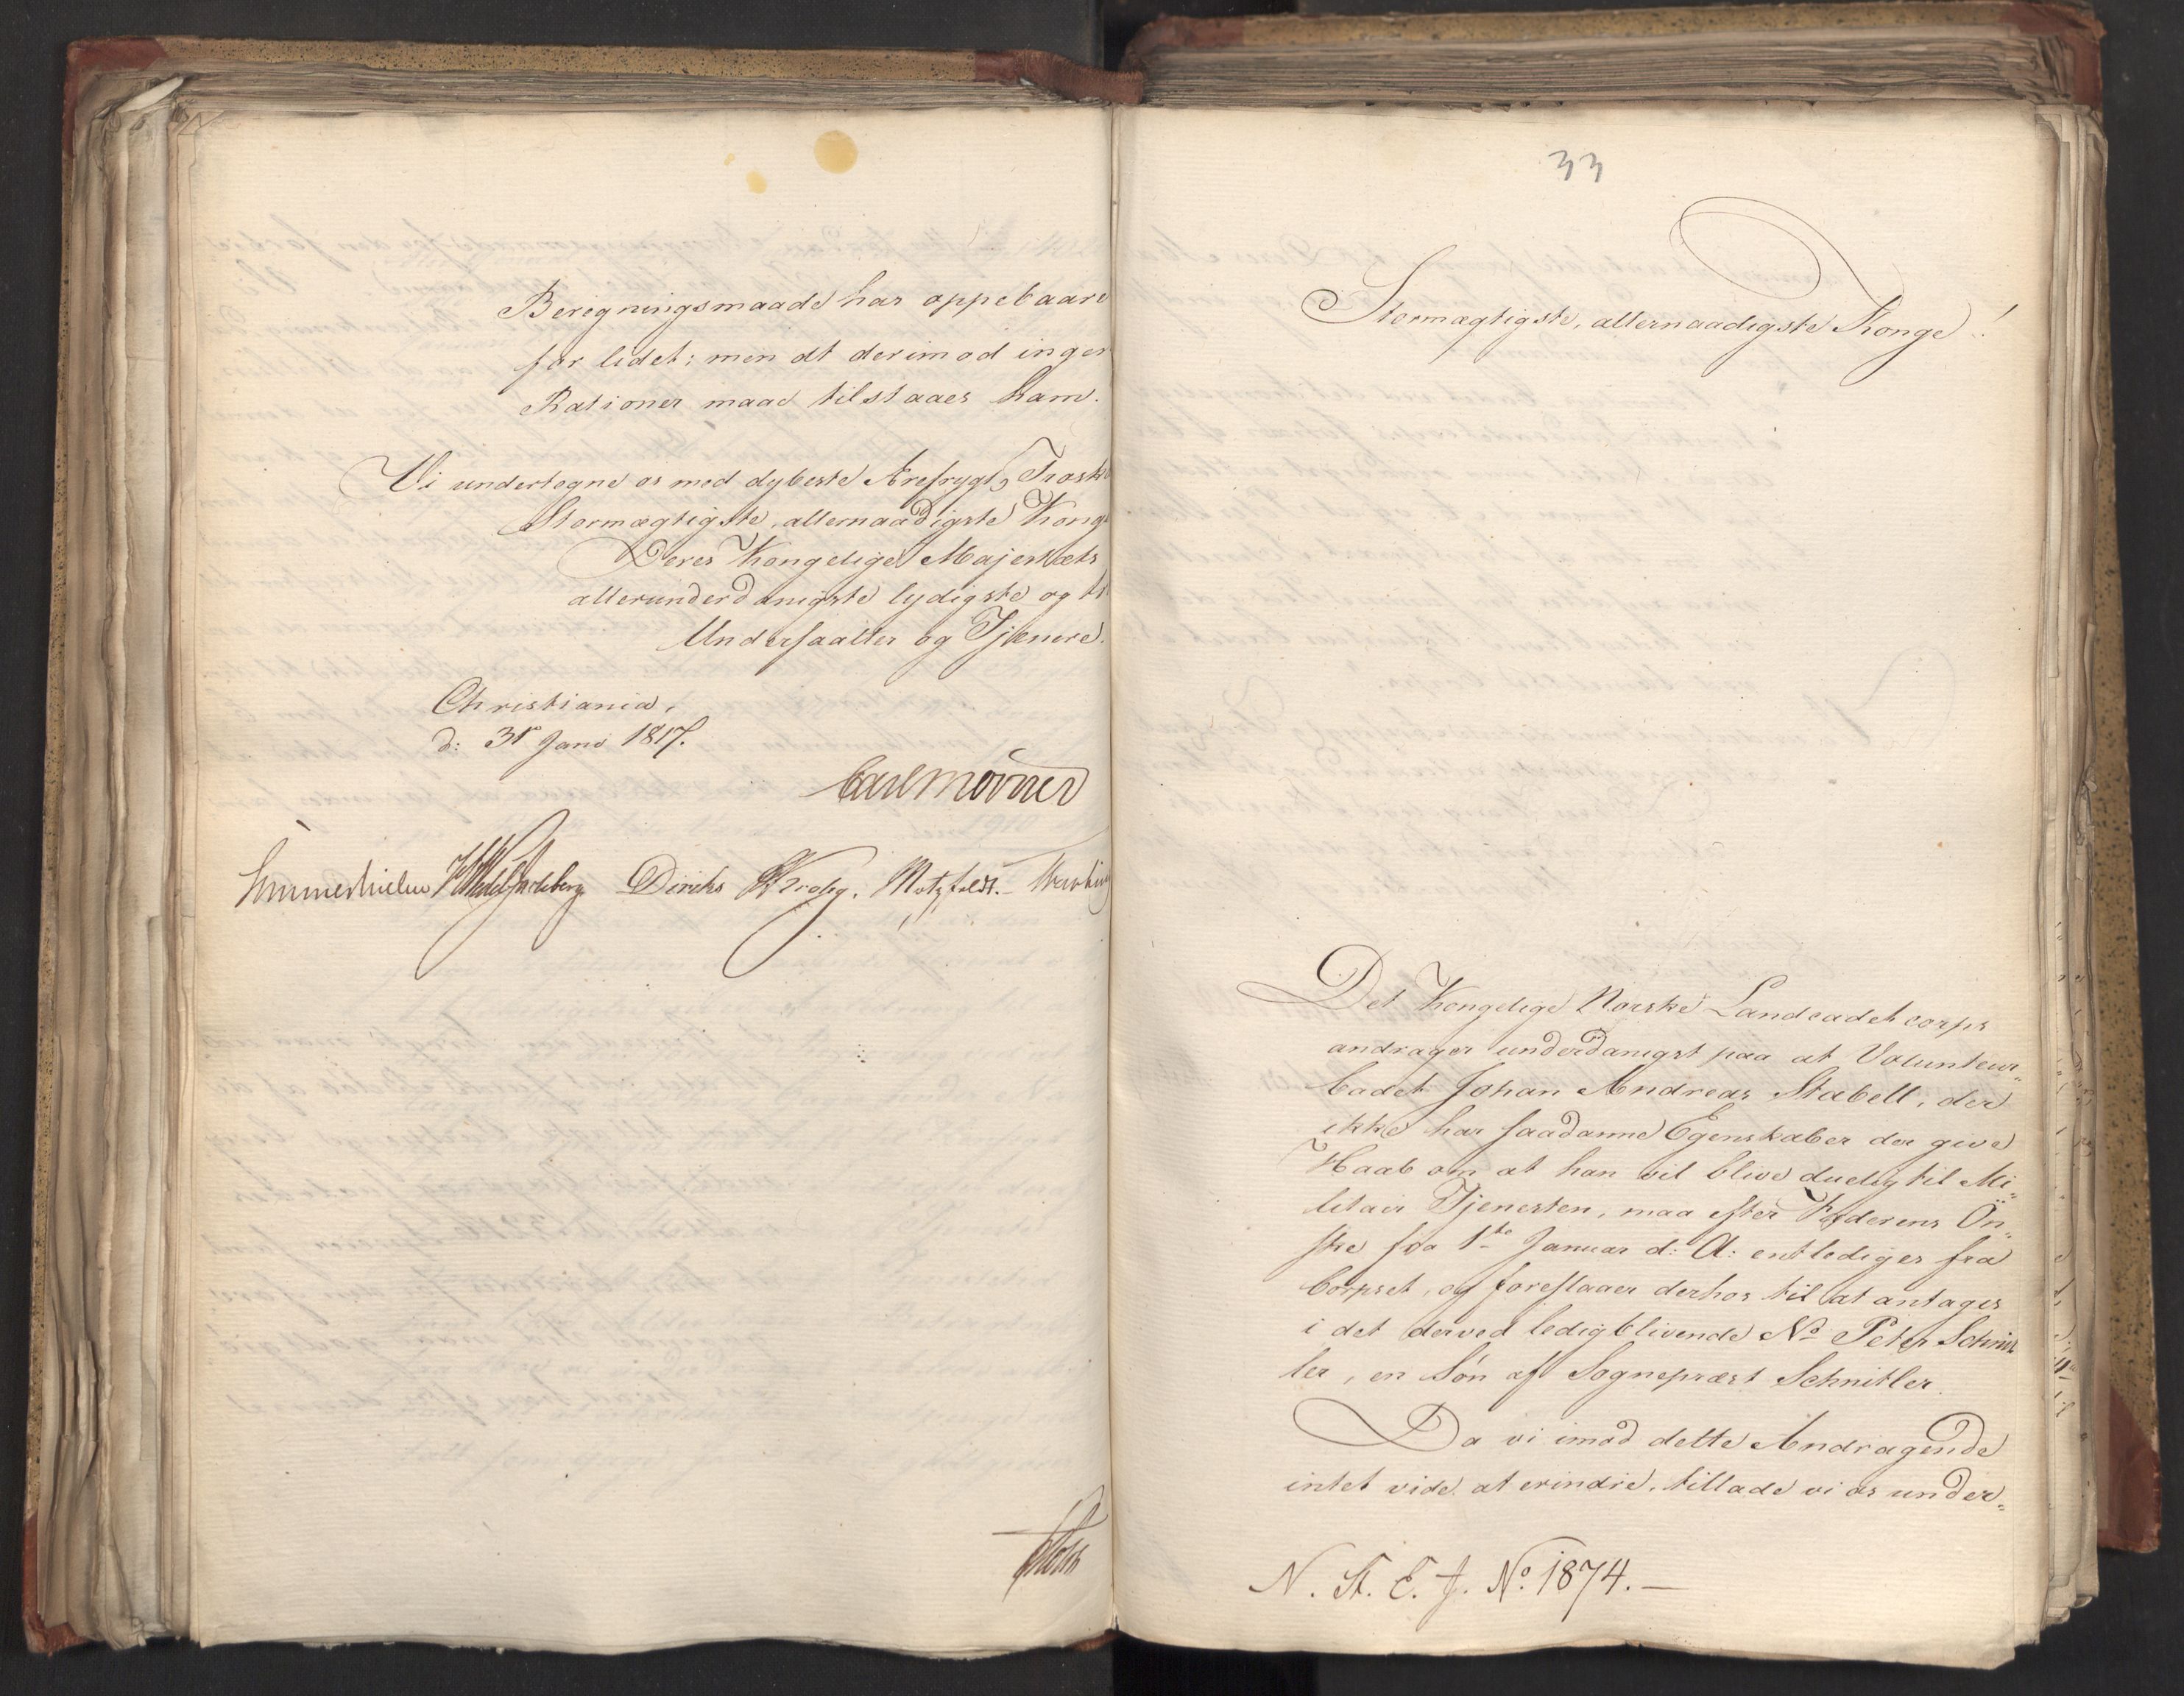 Beregningsmaade har oppebaare
for lidet; men at derimod ingen
Rationer maae tilstaaes ham.
Vi undertegne os med dybeste Ærefrygt, Trosk
Stormægtigste, allernaadigste Konge
Deres Kongelige Majestæts
allerunderdanigste lydigste og tr
Undersaatter og Tjenere.
Christiania,
d: 31te Janr 1817.
Carl Mörner
Sommerhielm HWedel Jarlsberg Diriks Krohg. Motzfeldt.
Holst
33
Stormægtigste, allernaadigste Konge!
Det Kongelige Norske Landcadetcorps
andrager underdanigst paa at Volunteur-
Cadet Johan Andreas Stabell, der
ikke har saadanne Egenskaber der give
Haab om at han vil blive duelig til Mi-
litair Tjenesten, maa efter Faderens Ön-
ske fra 1ste Januar d: A: entlediges fra
Corpset, og foreslaaer derhos til at antages
i det derved ledigblivende No Peter Schnit
ler, en Søn af Sogneprest Schnitler.
Da vi imod dette Andragende
intet vide at erindre, tillade vi os under-
N. St. E. J. No. 1874.—